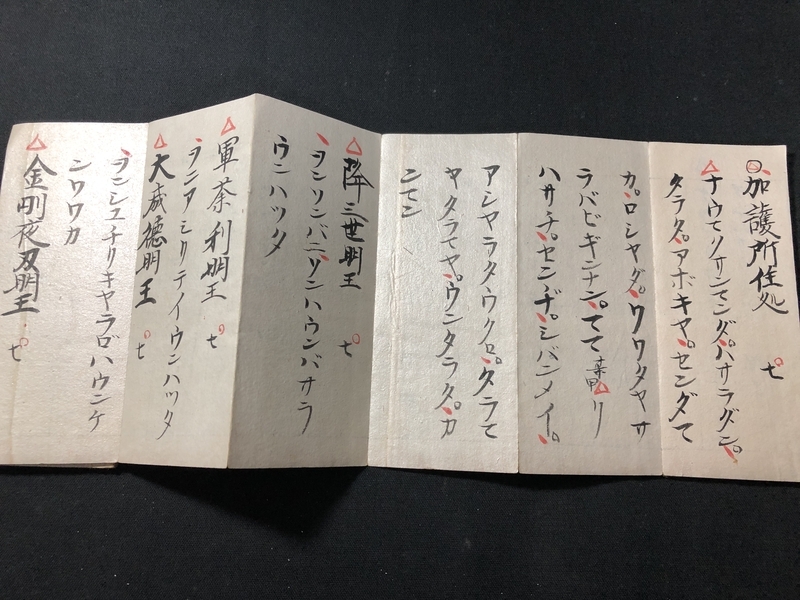 加護所住処 七
ナウマクサンマンダバサラダン
タラタアボキヤセンダマ
カロシヤダソワタヤサ
ラバビギンナンママ某甲リ
ハサチセンヂシバンメイ
アシヤラタウクロタラマ
ヤタラマヤウンタラタカ
ンマン
降三世明王 七
ヲンソンバニソンハウンバサラ
ウンハツタ
軍荼利明王 七
ヲンアミリテイウンハツタ
大威徳明王 七
ヲンシユチリキヤラロハウンケ
ンソワカ
金剛夜叉明王 七